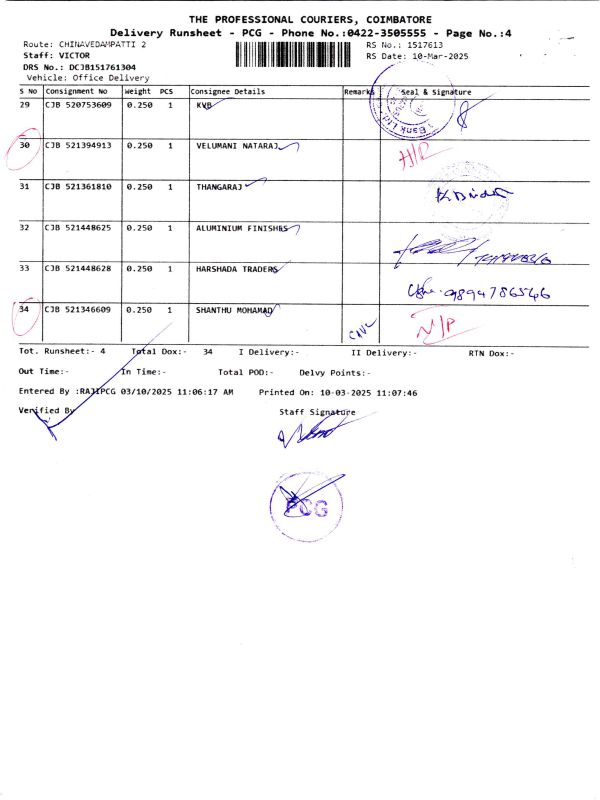 THE PROFESSIONAL COURIERS, COIMBATORE
Delivery Runsheet - PCG - Phone No.:0422-3505555 - Page No.:4
Route: CHINAVEDAMPATTI 2 RS No.: 1517613
Staff: VICTOR RS Date: 10-Mar-2025
DRS No.: DCJB151761304
Vehicle: Office Delivery
S No Consignment No Weight PCS Consignee Details Remarks Seal & Signature
29 CJB 520753609 0.250 1 KVB
30 CJB 521394913 0.250 1 VELUMANI NATARAJ
31 CJB 521361810 0.250 1 THANGARAJ
32 CJB 521448625 0.250 1 ALUMINIUM FINISHES
33 CJB 521448628 0.250 1 HARSHADA TRADERS
9894786546
34 CJB 521346609 0.250 1 SHANTHU MOHAMAD N/P
Tot. Runsheet:- 4 Total Dox:- 34 I Delivery:- II Delivery:- RTN Dox:-
Out Time:- In Time:- Total POD:- Delvy Points:-
Entered By :RAJIPCG 03/10/2025 11:06:17 AM Printed On: 10-03-2025 11:07:46
Verified By Staff Signature
PCG